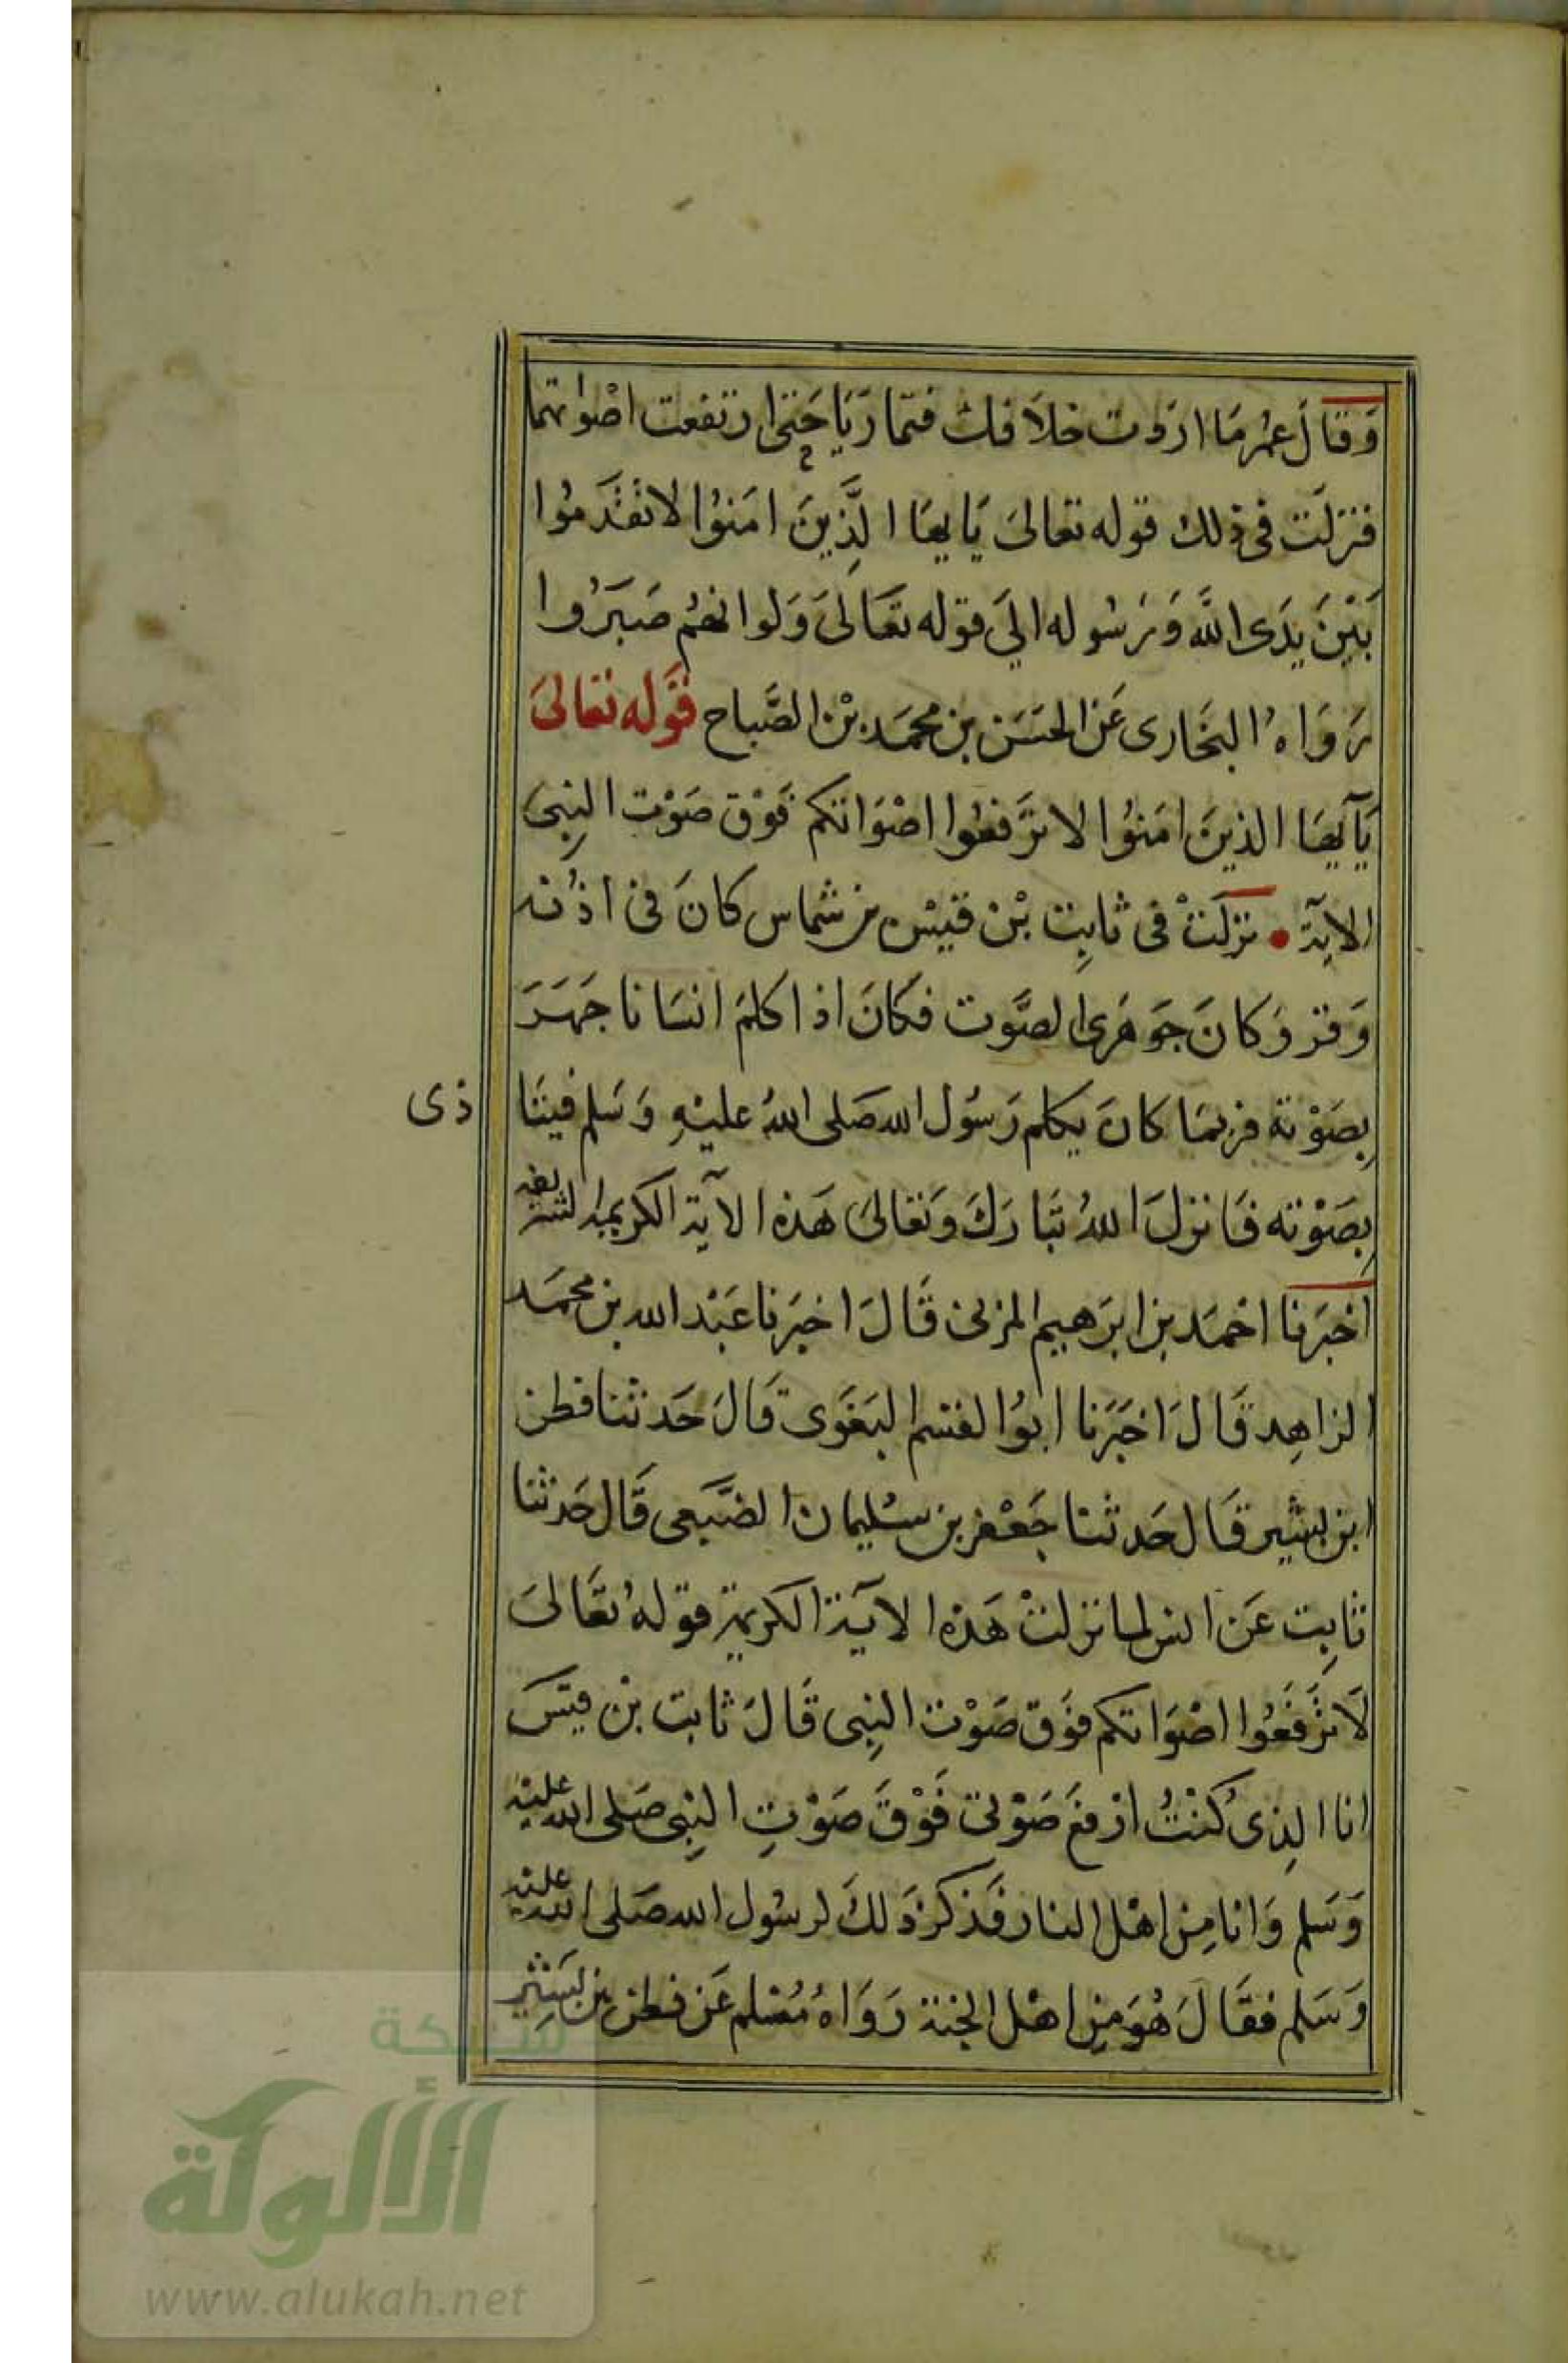 وَقَالَ عمُر مَا ارَدت خلاَفك فتمَارَيَا حَتى ارتفعت اصْواتهما
فنزلَت فى ذلك قوله تعَالىَ يَايهَا الَّذِينَ امَنوُا لا تقَدمُوا
بَيْنَ يدَى اللَّه وَرَسُوله الىَ قوله تعَالىَ وَلوانهُم صَبرَوُا
رَوَاهُ البخَارى عَن الحَسَن بن محمَد بْن الصَّباح قَوله تعَالىَ
يَآيهَا الذينَ امَنوُا لا ترَفعُوا اصْوَاتكم فَوْق صَوْت النِبى
الايَة • نزلَتْ فى ثابِت بْن قيْس بن شماس كانَ فى اذُنه
وَقر وَكانَ جَوهَرى الصَّوت فكَانَ اذا كلمَ انسَانا جَهَرَ
بِصَوْته فربمَا كانَ يكلم رَسُول الله صَلى اللهُ عليْهِ وَسَلم فيتَا
ذى
بِصَوْته فَانزلَ اللهُ تبَارَكَ وَتعَالىَ هَذه الآيَة الكريمة الشريفه
اخبَرنا احْمَد بن ابرَهيم المزنى قَالَ اخبَرنا عَبْد الله بن محمَد
الزاهِد قَالَ اخبَرَنا ابوُ القسم البَغَوى قَالَ حَدثنا قطن
ابن بشير قَال حَدثنا جَعْفر بن سُليمان الضبَعى قَال حَدثنا
ثابِت عَن انس لما نزلتْ هَذه الآيَة الكريمة قولهُ تعَّالىَ
لاَ ترَفَعُوا اصْوَاتكم فوَق صَوْت النِبى قَالَ ثابت بْن قيسَ
انا الذِى كُنْتُ ارفعَ صَوْتى فَوْقَ صَوْتِ النِبى صَلى الله عليْه
وَسَلم وَانا مِن اهْل النار فَذكرَ ذَلكَ لرسُول الله صَلى الله عليْه
وَسَلم فقَالَ هُوَ مِن اهْل الجنة رَوَاهُ مُسْلم عَن قطن بن بشِير
شبكة
الألوكة
www.alukah.net